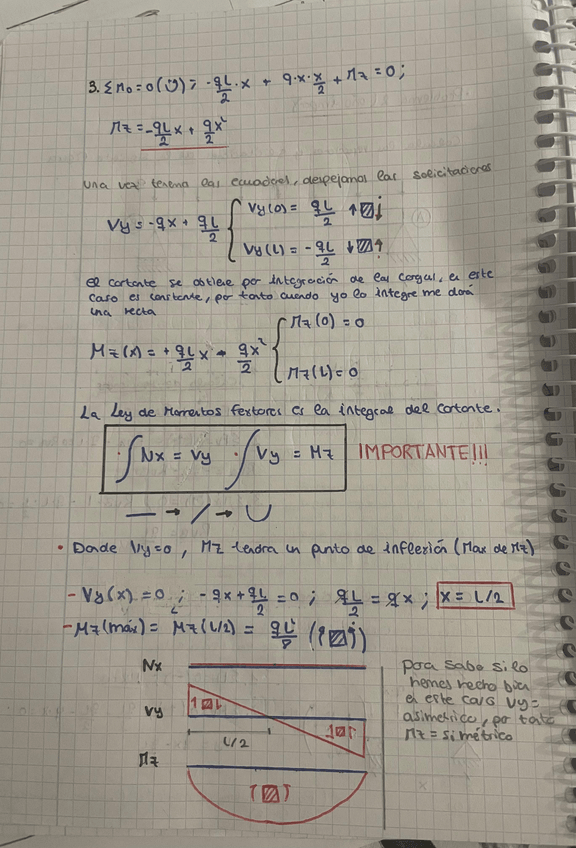 3. ΣM₀=0 (↺); -qL/2·x + q·x·x/2 + Mz = 0;
Mz = -qL/2 x + qx²/2
Una vez tenemos las ecuaciones, despejamos las solicitaciones
Vy = -qx + qL/2 { Vy(0) = qL/2 ↑▨↓
Vy(L) = -qL/2 ↓▨↑
el cortante se obtiene por integración de las cargas, en este
caso es constante, por tanto cuando yo lo integre me dará
una recta
Mz(x) = + qL/2 x - qx²/2 { Mz(0) = 0
Mz(L) = 0
La Ley de Momentos flectores es la integral del cortante.
· ∫ Nx = Vy · ∫ Vy = Mz IMPORTANTE!!!
— → / → ∪
• Donde Vy=0, Mz tendrá un punto de inflexión (Max de Mz)
- Vy(x) = 0; -qx + qL/2 = 0; qL/2 = qx; x = L/2
- Mz(máx) = Mz(L/2) = qL²/8 (▨)
Nx
Vy
L/2
Mz
para saber si lo
hemos hecho bien
en este caso Vy =
asimétrico, por tanto
Mz = simétrico